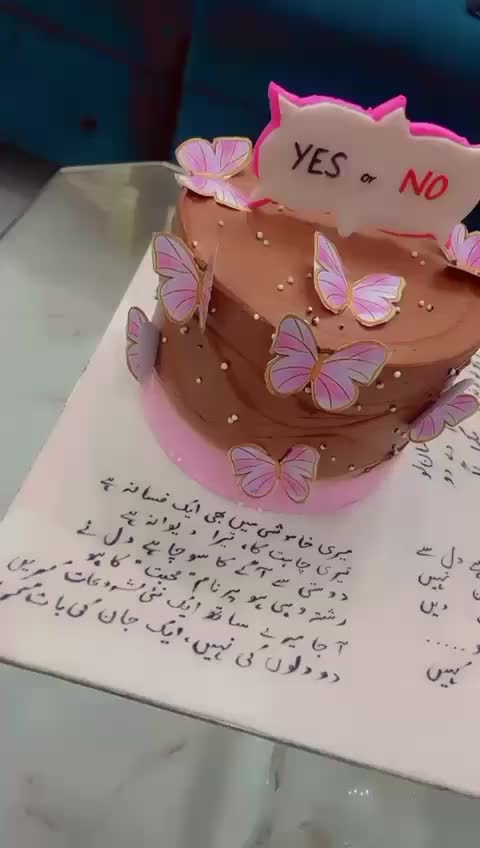 YES or NO
میری خاموشی میں بھی ایک فسانہ ہے
تیری چاہت کا، تیرا دیوانہ ہے
دوستی سے آگے کا سوچا ہے دل نے
رشتہ وہی ہو پر نام "محبت" کا ہو
آجا میرے ساتھ ایک نئی شروعات کریں
دو دلوں کی نہیں، ایک جان کی بات کریں
دل سے
نہیں
دیں
.....
کہیں